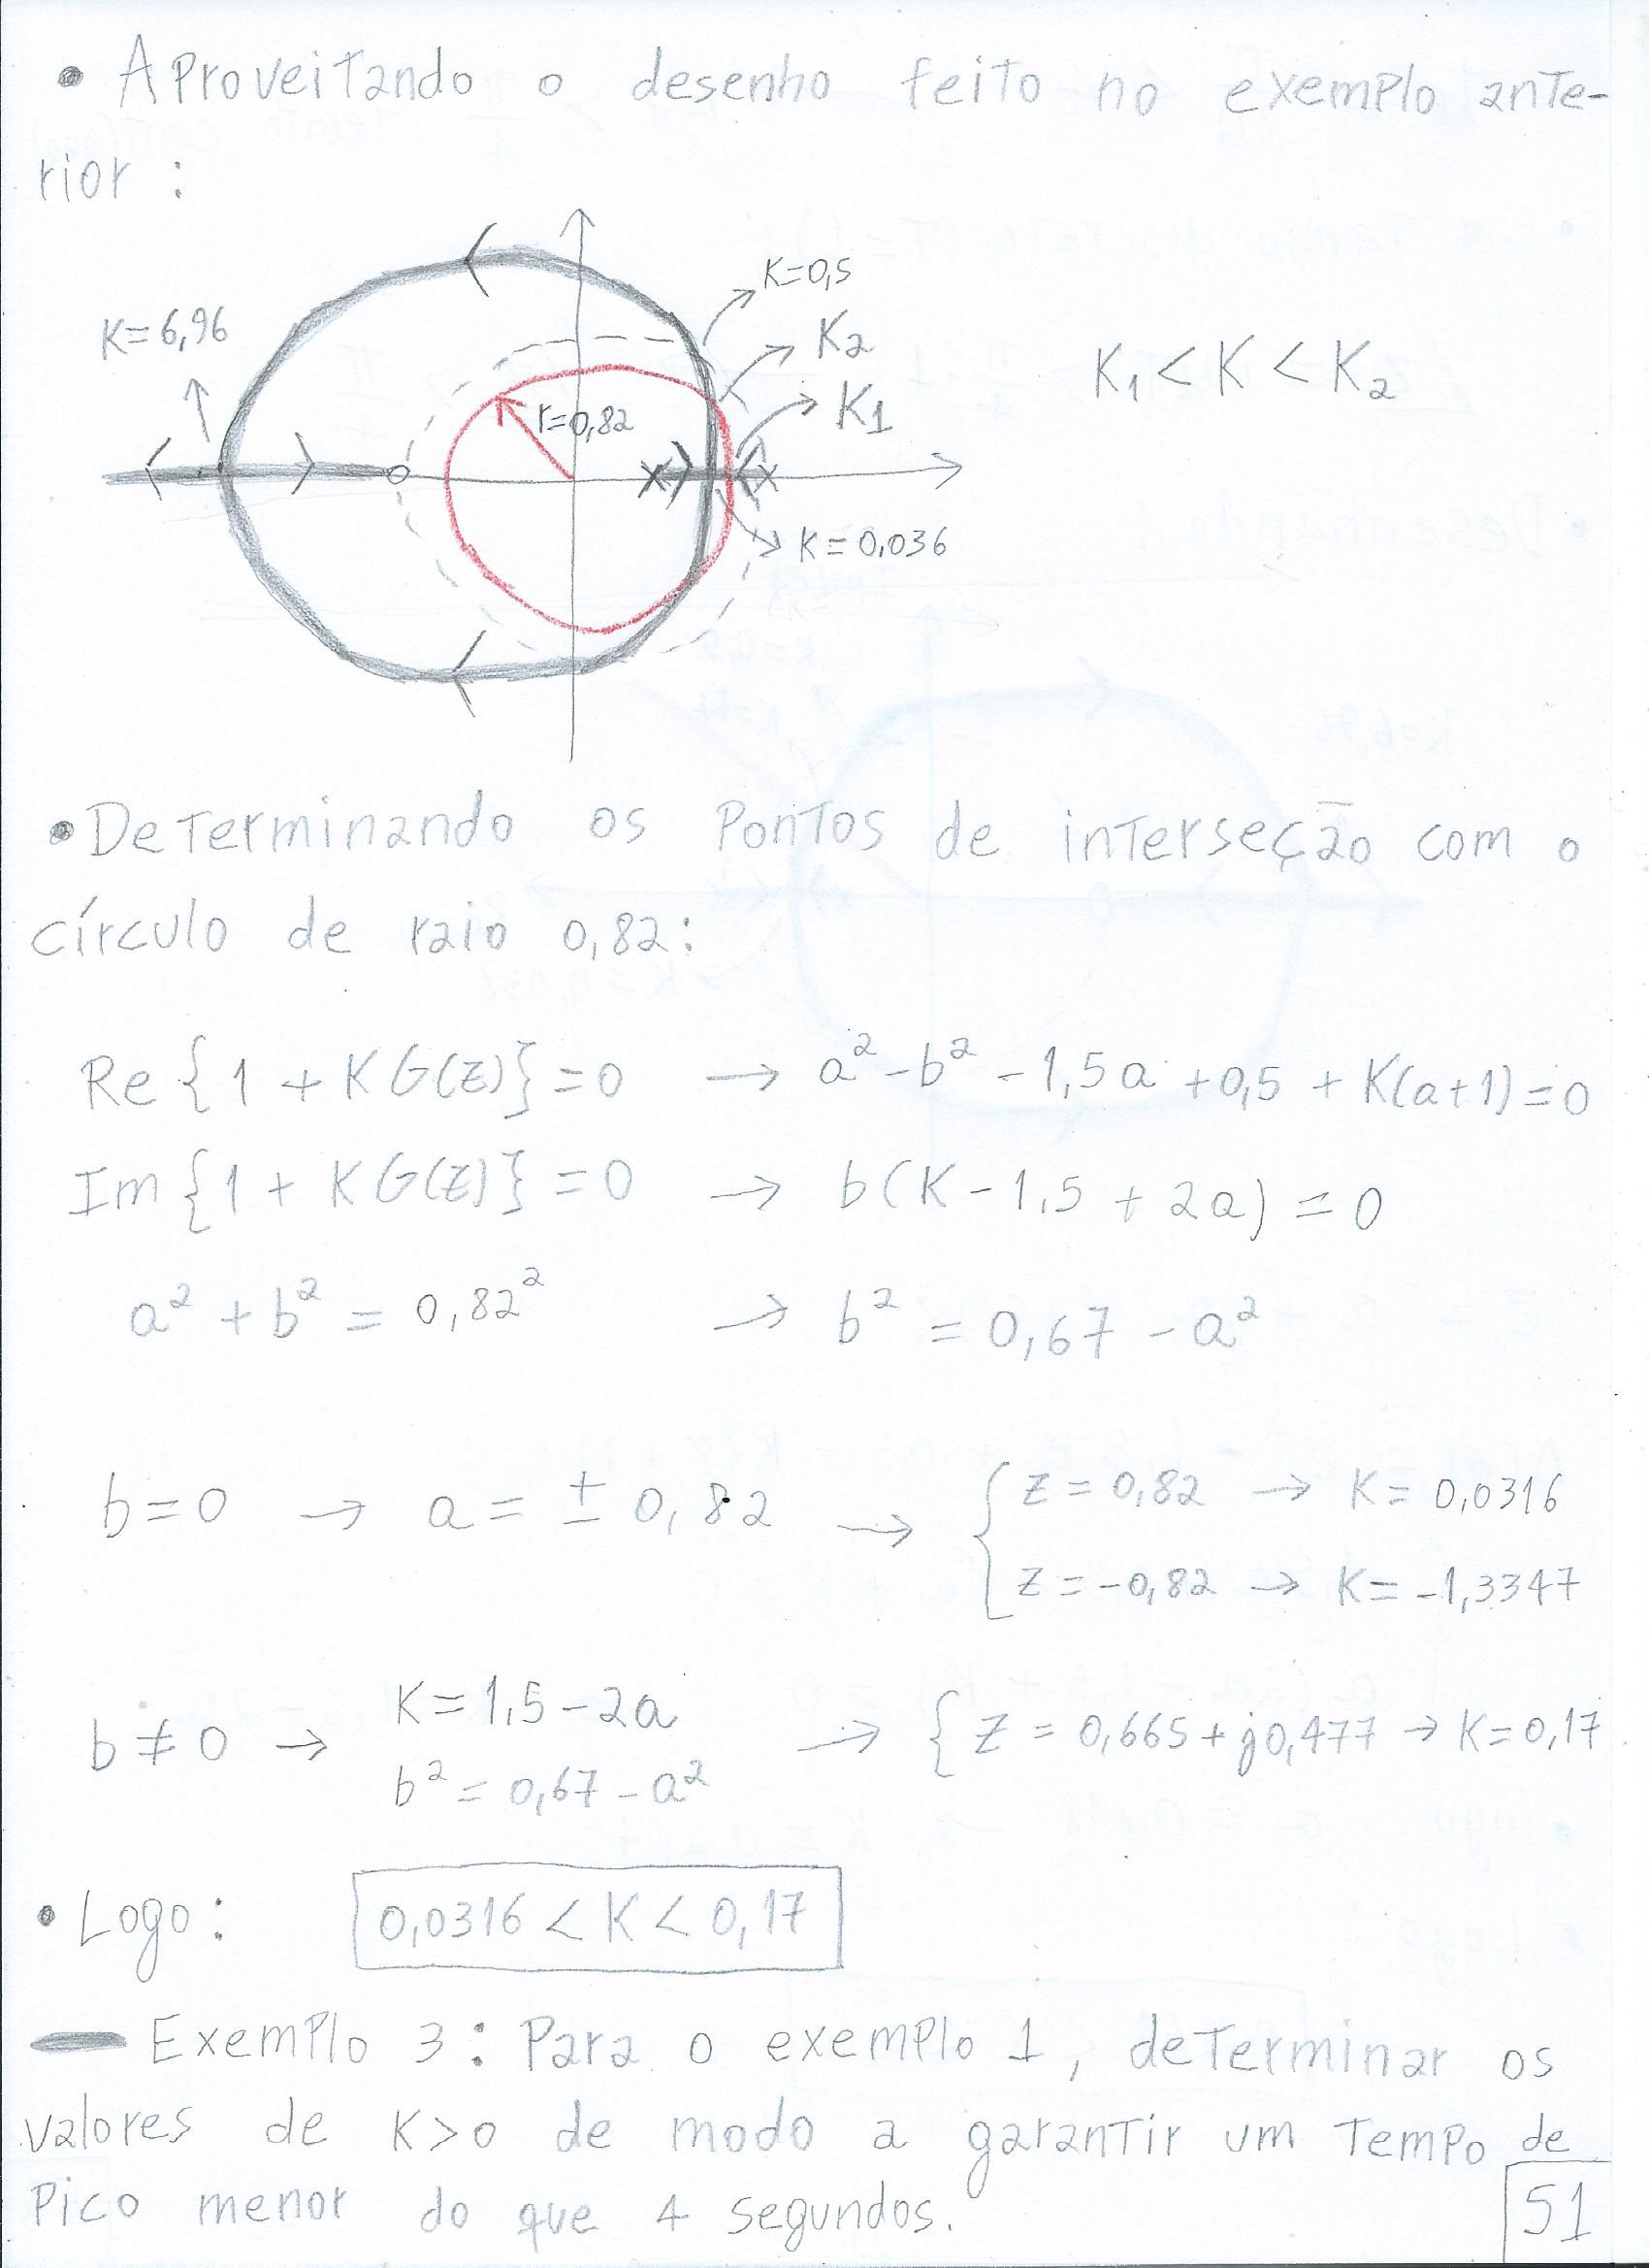 • Aproveitando o desenho feito no exemplo ante-
rior :
K=0,5
K=6,96
K2
K1
r=0,82
K = 0,036
K₁ < K < K₂
• Determinando os pontos de interseção com o
círculo de raio 0,82:
Re {1 + K G(z)} = 0 → a² - b² - 1,5a + 0,5 + K(a+1) = 0
Im {1 + K G(z)} = 0 → b(K - 1,5 + 2a) = 0
a² + b² = 0,82² → b² = 0,67 - a²
b = 0 → a = ± 0,82 → { z = 0,82 → K = 0,0316
z = -0,82 → K = -1,3347
b ≠ 0 → K = 1,5 - 2a → { z = 0,665 + j0,477 → K = 0,17
b² = 0,67 - a²
• Logo: 0,0316 < K < 0,17
— Exemplo 3: Para o exemplo 1, determinar os
valores de K>0 de modo a garantir um tempo de
pico menor do que 4 segundos.
51